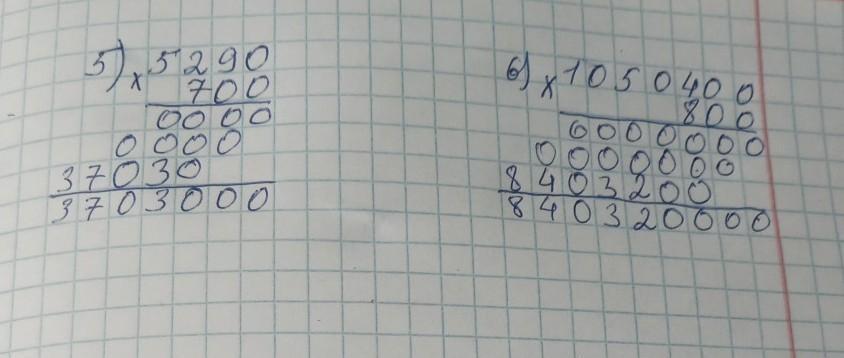 5) x 5290
700
0000
0000
37030
3703000
6) x 1050400
800
0000000
0000000
8403200
840320000